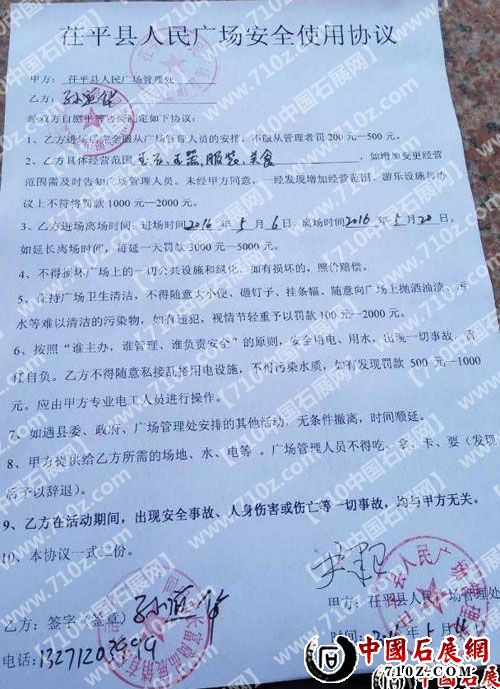 茌平县人民广场安全使用协议
甲方：茌平县人民广场管理处
乙方：
经双方自愿平等协商制定如下协议：
1、乙方进场应完全服从广场管理人员的安排，不服从管理者罚 200 元—500 元。
2、乙方具体经营范围玉石、玉器、服装、美食，如增加变更经营
范围需及时告知广场管理人员。未经甲方同意，一经发现增加经营范围、游乐设施与协
议上不符将罚款 1000 元—2000 元。
3、乙方进场离场时间，进场时间2016 年 5 月 6 日，离场时间2016 年 5 月 20 日。
如延长离场时间，每延一天罚款 3000 元—5000 元。
4、不得损坏广场上的一切公共设施和绿化，如有损坏的，照价赔偿。
5、保持广场卫生清洁，不得随意大小便、砸钉子、挂条幅、随意向广场上抛洒油渍、污
水等难以清洁的污染物，如有违犯，视情节轻重予以罚款 100 元—2000 元。
6、按照“谁主办，谁管理、谁负责安全”的原则，安全用电、用水，出现一切事故，责
任自负。乙方不得随意私接乱搭用电设施，不可污染水质，如有发现罚款 500 元—1000
元。应由甲方专业电工人员进行操作。
7、如遇县委、政府、广场管理处安排的其他活动，无条件撤离，时间顺延。
8、甲方提供给乙方所需的场地、水、电等 。广场管理人员不得吃、拿、卡、要（发现
后予以辞退）。
9、乙方在活动期间，出现安全事故、人身伤害或伤亡等一切事故，均与甲方无关。
10、本协议一式二份。
乙方：签字（签章）
甲方：茌平县人民广场管理处
电话：13271203999
时间：2016年 5 月
中國石展網
710Z.COM
www.710z.com【中国石展网】